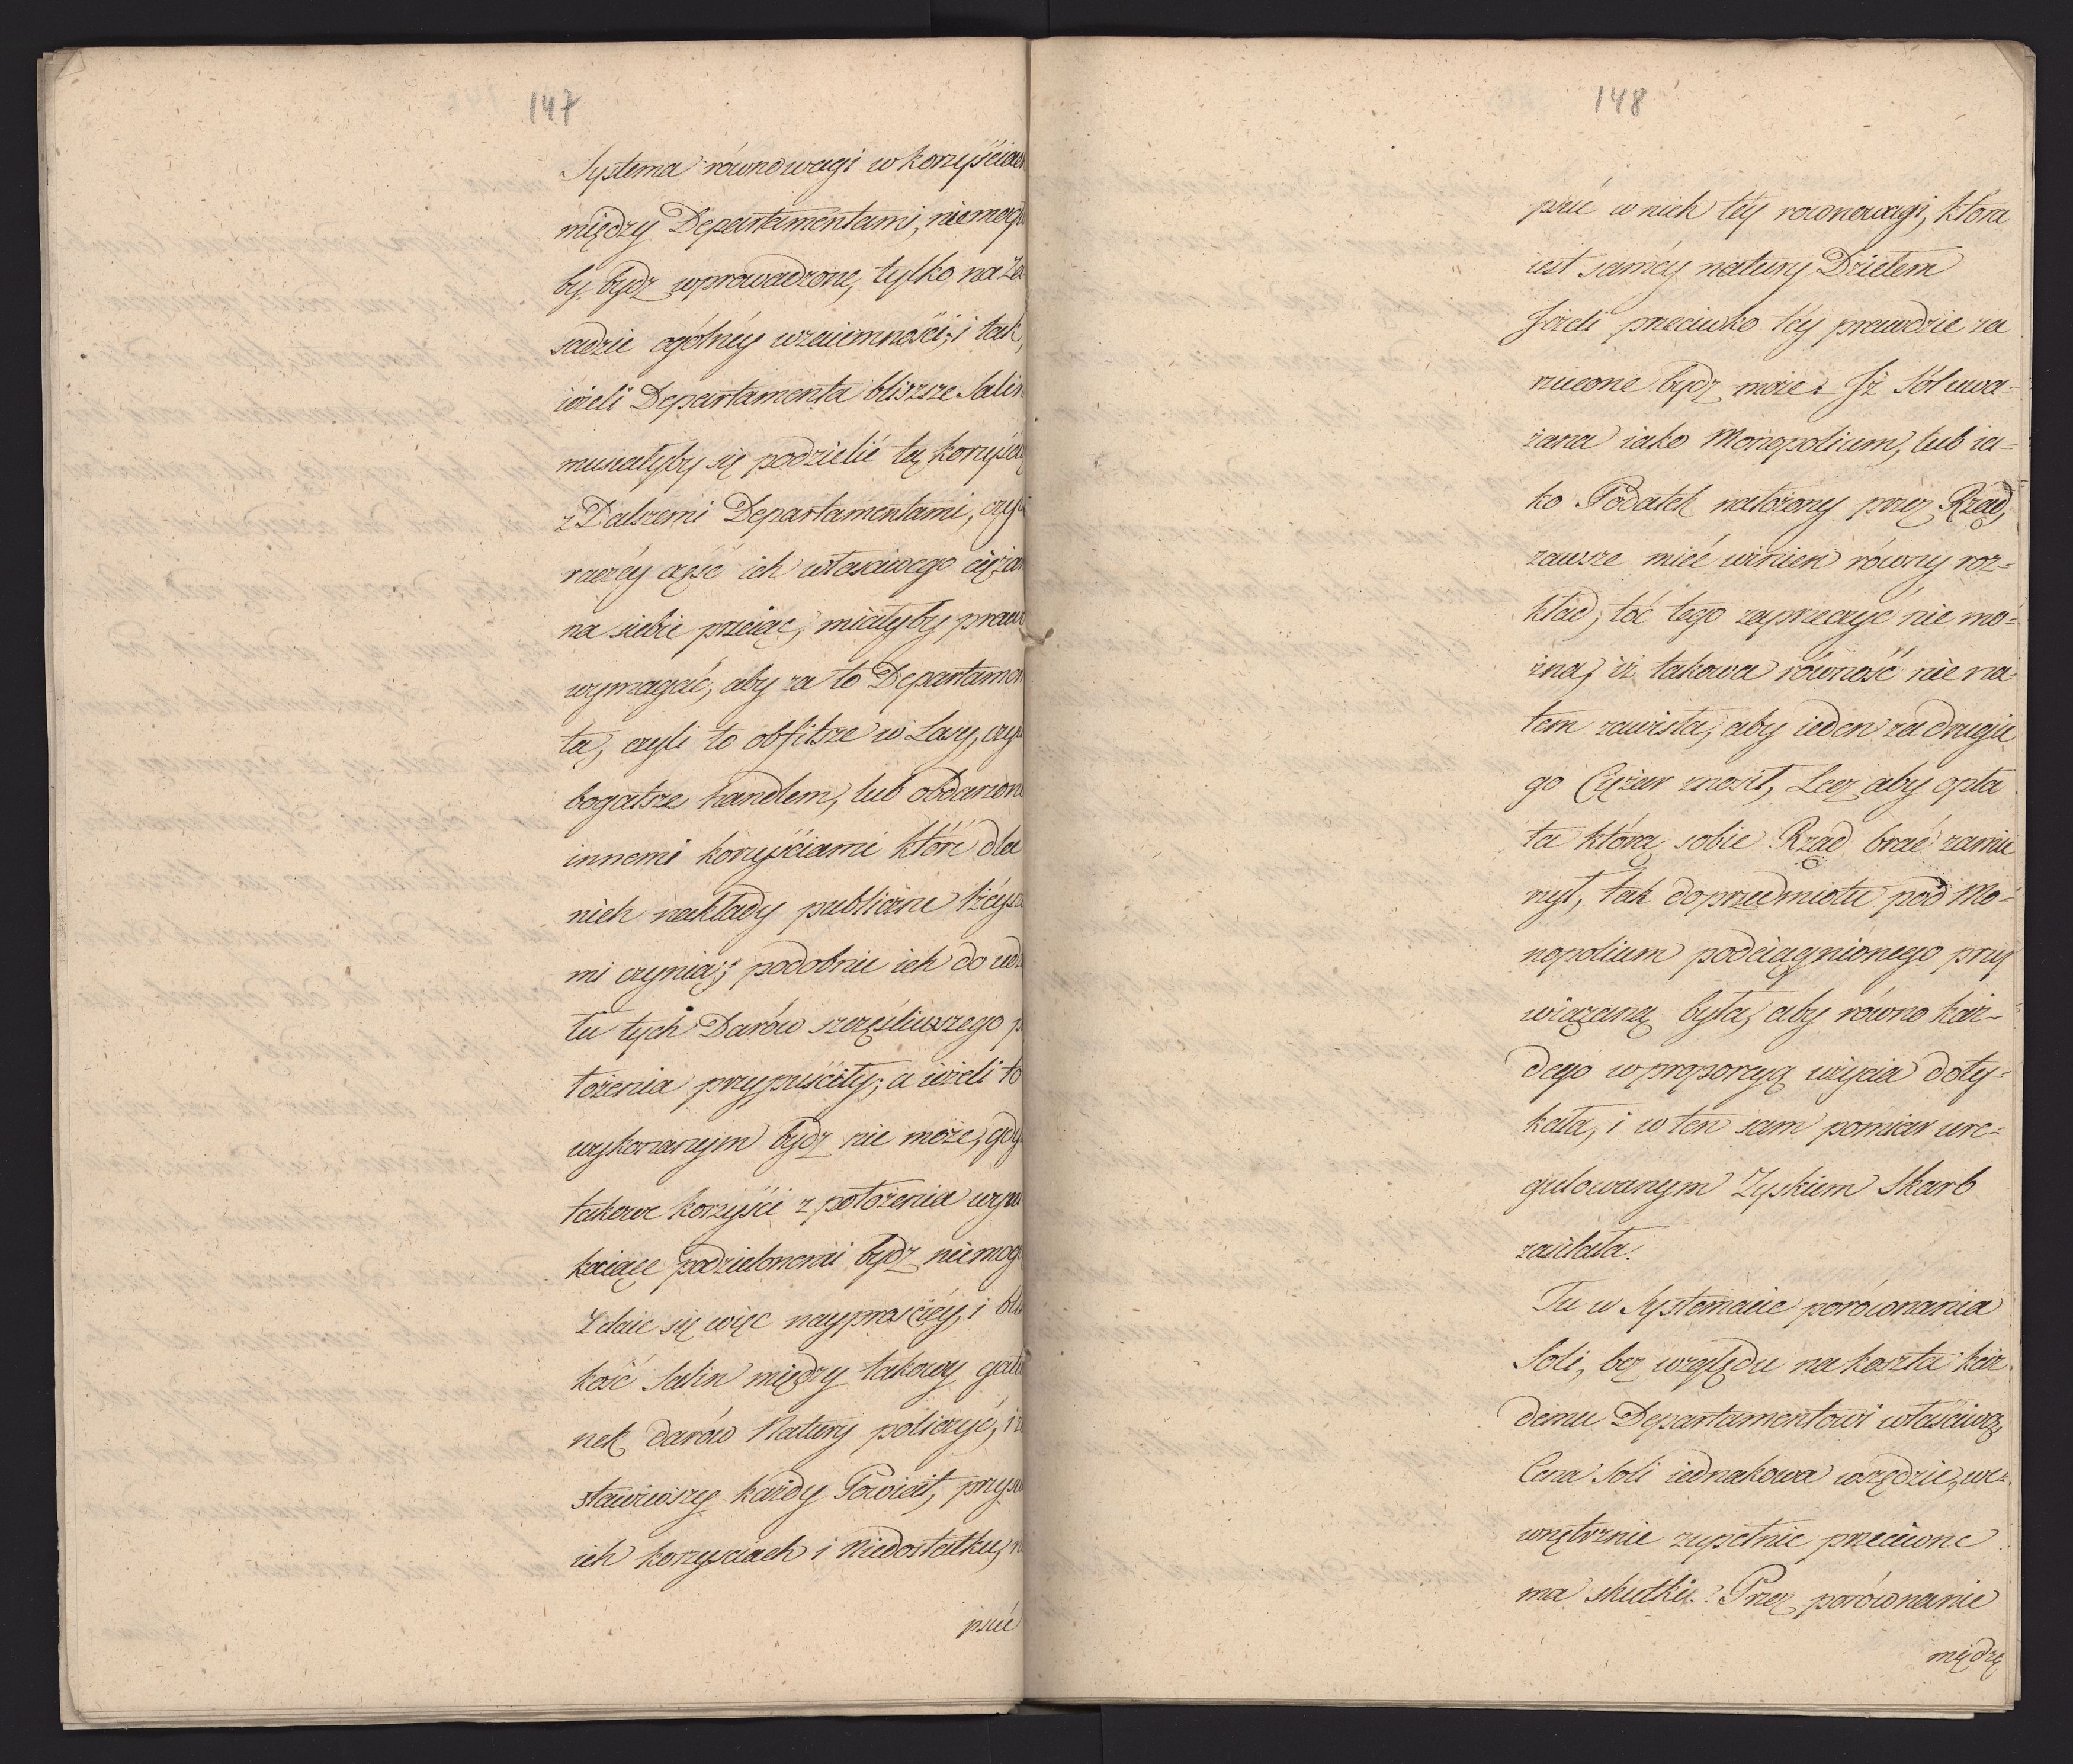 147
Systema równowagi w korzyściach
między Departamentami, niemogło
by bydz wprowadzone, tylko na Za
sadzie ogólnéy wzaiemności; i tak,
ieżeli Departamenta bliższe Salin
musiałyby się podzielić tą korzyścią
z Dalszemi Departamentami, czyli
raczéy część ich własciwego ciężaru
na siebie przeiąc, miałyby prawo
wymagać, aby za to Departamen
ta, czyli to obfitsze w Lasy, czyli
bogatsze handlem, lub obdarzone
innemi korzyściami które dla
nich nakłady publiczne
mi czynią; podobnie ich do udzia
łu tych Darów szczęśliwszego po
łożenia przypuściły; a ieżeli to
wykonanym bydz nie może, gdy
takowe korzyści z położenia wyni
kaiące podzielonemi bydz niemogą
Zdaie się więc nayprościéy, i blis
kość Salin między takowy gatu
nek darów Natury policzyć, i zo
stawiwszy każdy Powiat, przy swo
ich korzysciach i Niedostatku, nie
psuć
148
psuć w nich téy rownowagi, ktora
iest saméy natury Dziełem
Jeżeli przeciwko téy prawdzie za
rzucone bydz może: Iż Sól uwa=
żana iako Monopolium, lub ia=
ko Podatek nałożony przez Rząd,
zawsze mieć winien równy roz=
kład, toć tego zaprzeczyć nie mo=
żna, iż takowa równość nie na
tem zawisła, aby ieden za drugie
go Ciężar znosił, Lecz aby opła
ta którą sobie Rząd brać zamie
rzył, tak do przedmiotu pod Mo=
nopolium podciągnionego przy
wiązaną była, aby równo każ=
dego w proporcyą użycia doty=
kała, i w ten sam pomiar ure=
gulowanym Zyskiem Skarb
zasilała.
Tu w Systemacie porównania
Soli, bez względu na koszta każ
demu Departamentowi właściwe,
Cena Soli iednakowa wszędzie, we=
wnętrznie zupełnie przeciwne
ma skutki. Przez porównanie
między